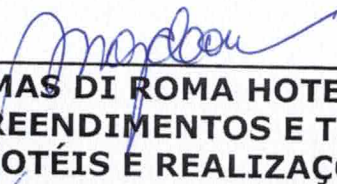 MAS DI ROMA HOTE
REENDIMENTOS E T
OTÉIS E REALIZAÇ